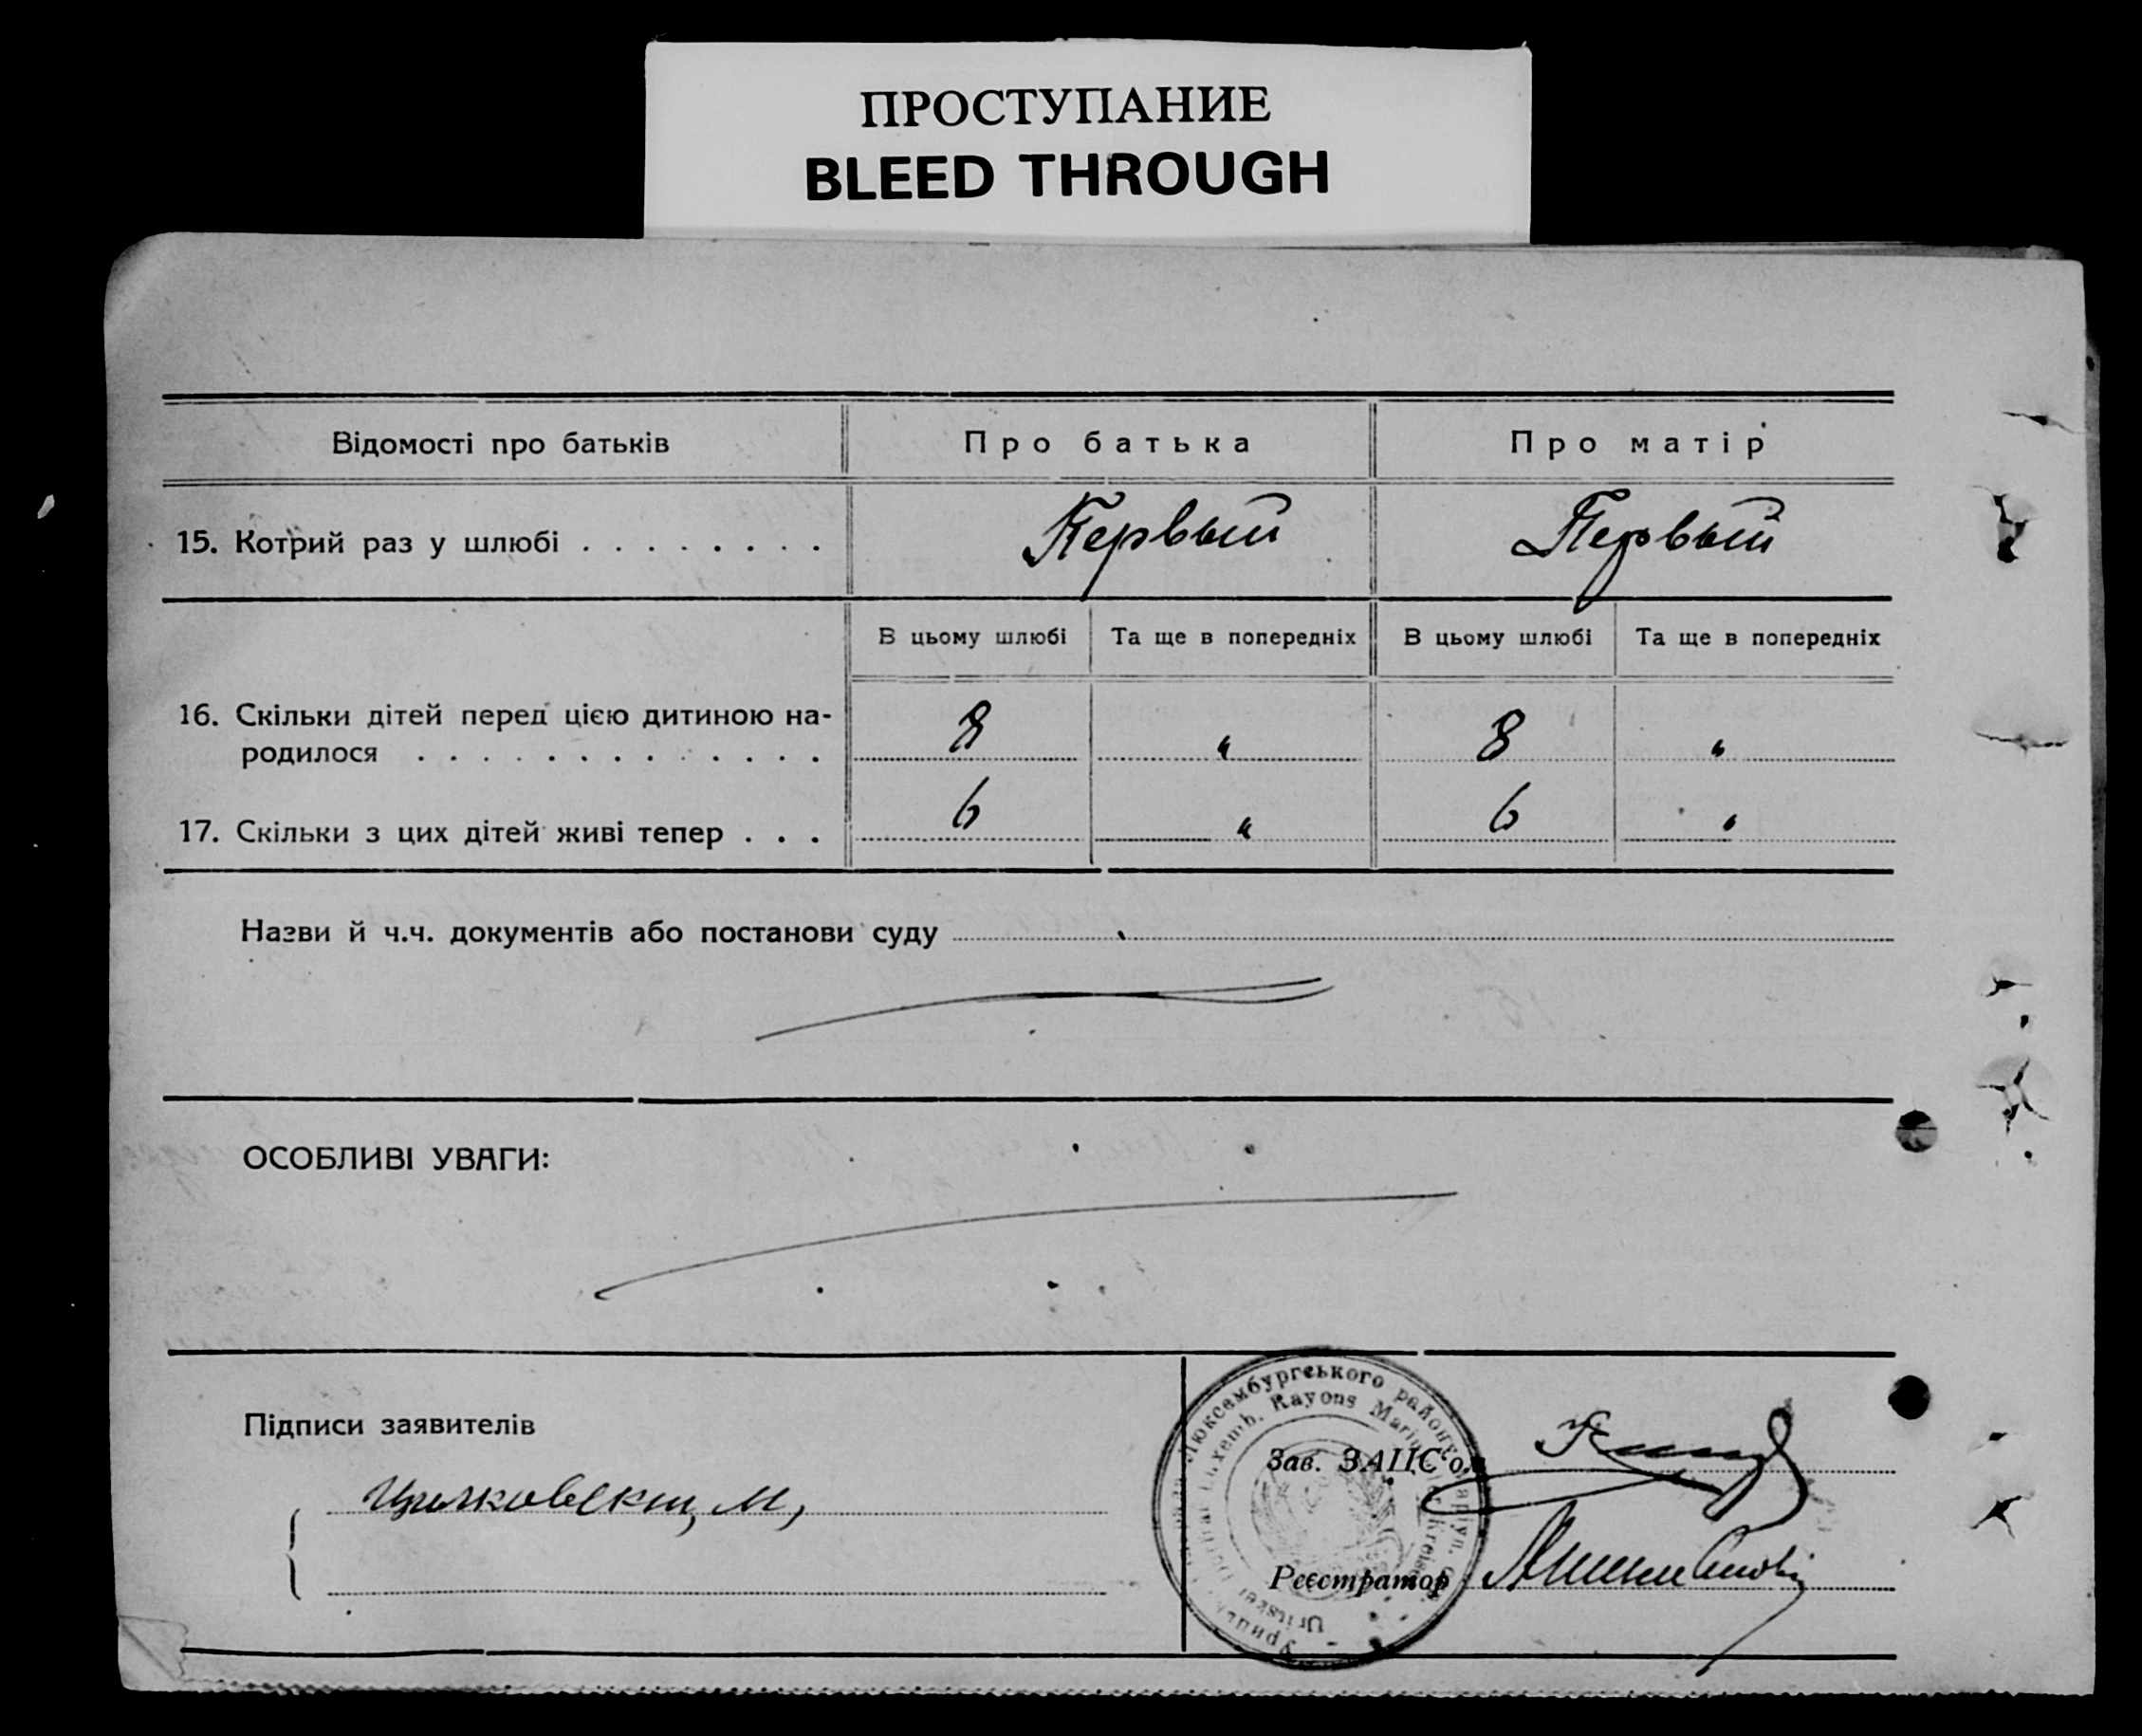 ПРОСТУПАНИЕ
BLEED THROUGH
Відомості про батьків Про батька Про матір
15. Котрий раз у шлюбі . . . . . . . . Первый Первый
В цьому шлюбі Та ще в попередніх В цьому шлюбі Та ще в попередніх
16. Скільки дітей перед цією дитиною на-
родилося . . . . . . . . . . . . . 8 " 8 "
17. Скільки з цих дітей живі тепер . . . 6 " 6 "
Назви й ч.ч. документів або постанови суду
ОСОБЛИВІ УВАГИ:
Люксембургського району
Luxemb. Rayons
Підписи заявителів
Зав. ЗАЦС'ом
Реєстратор